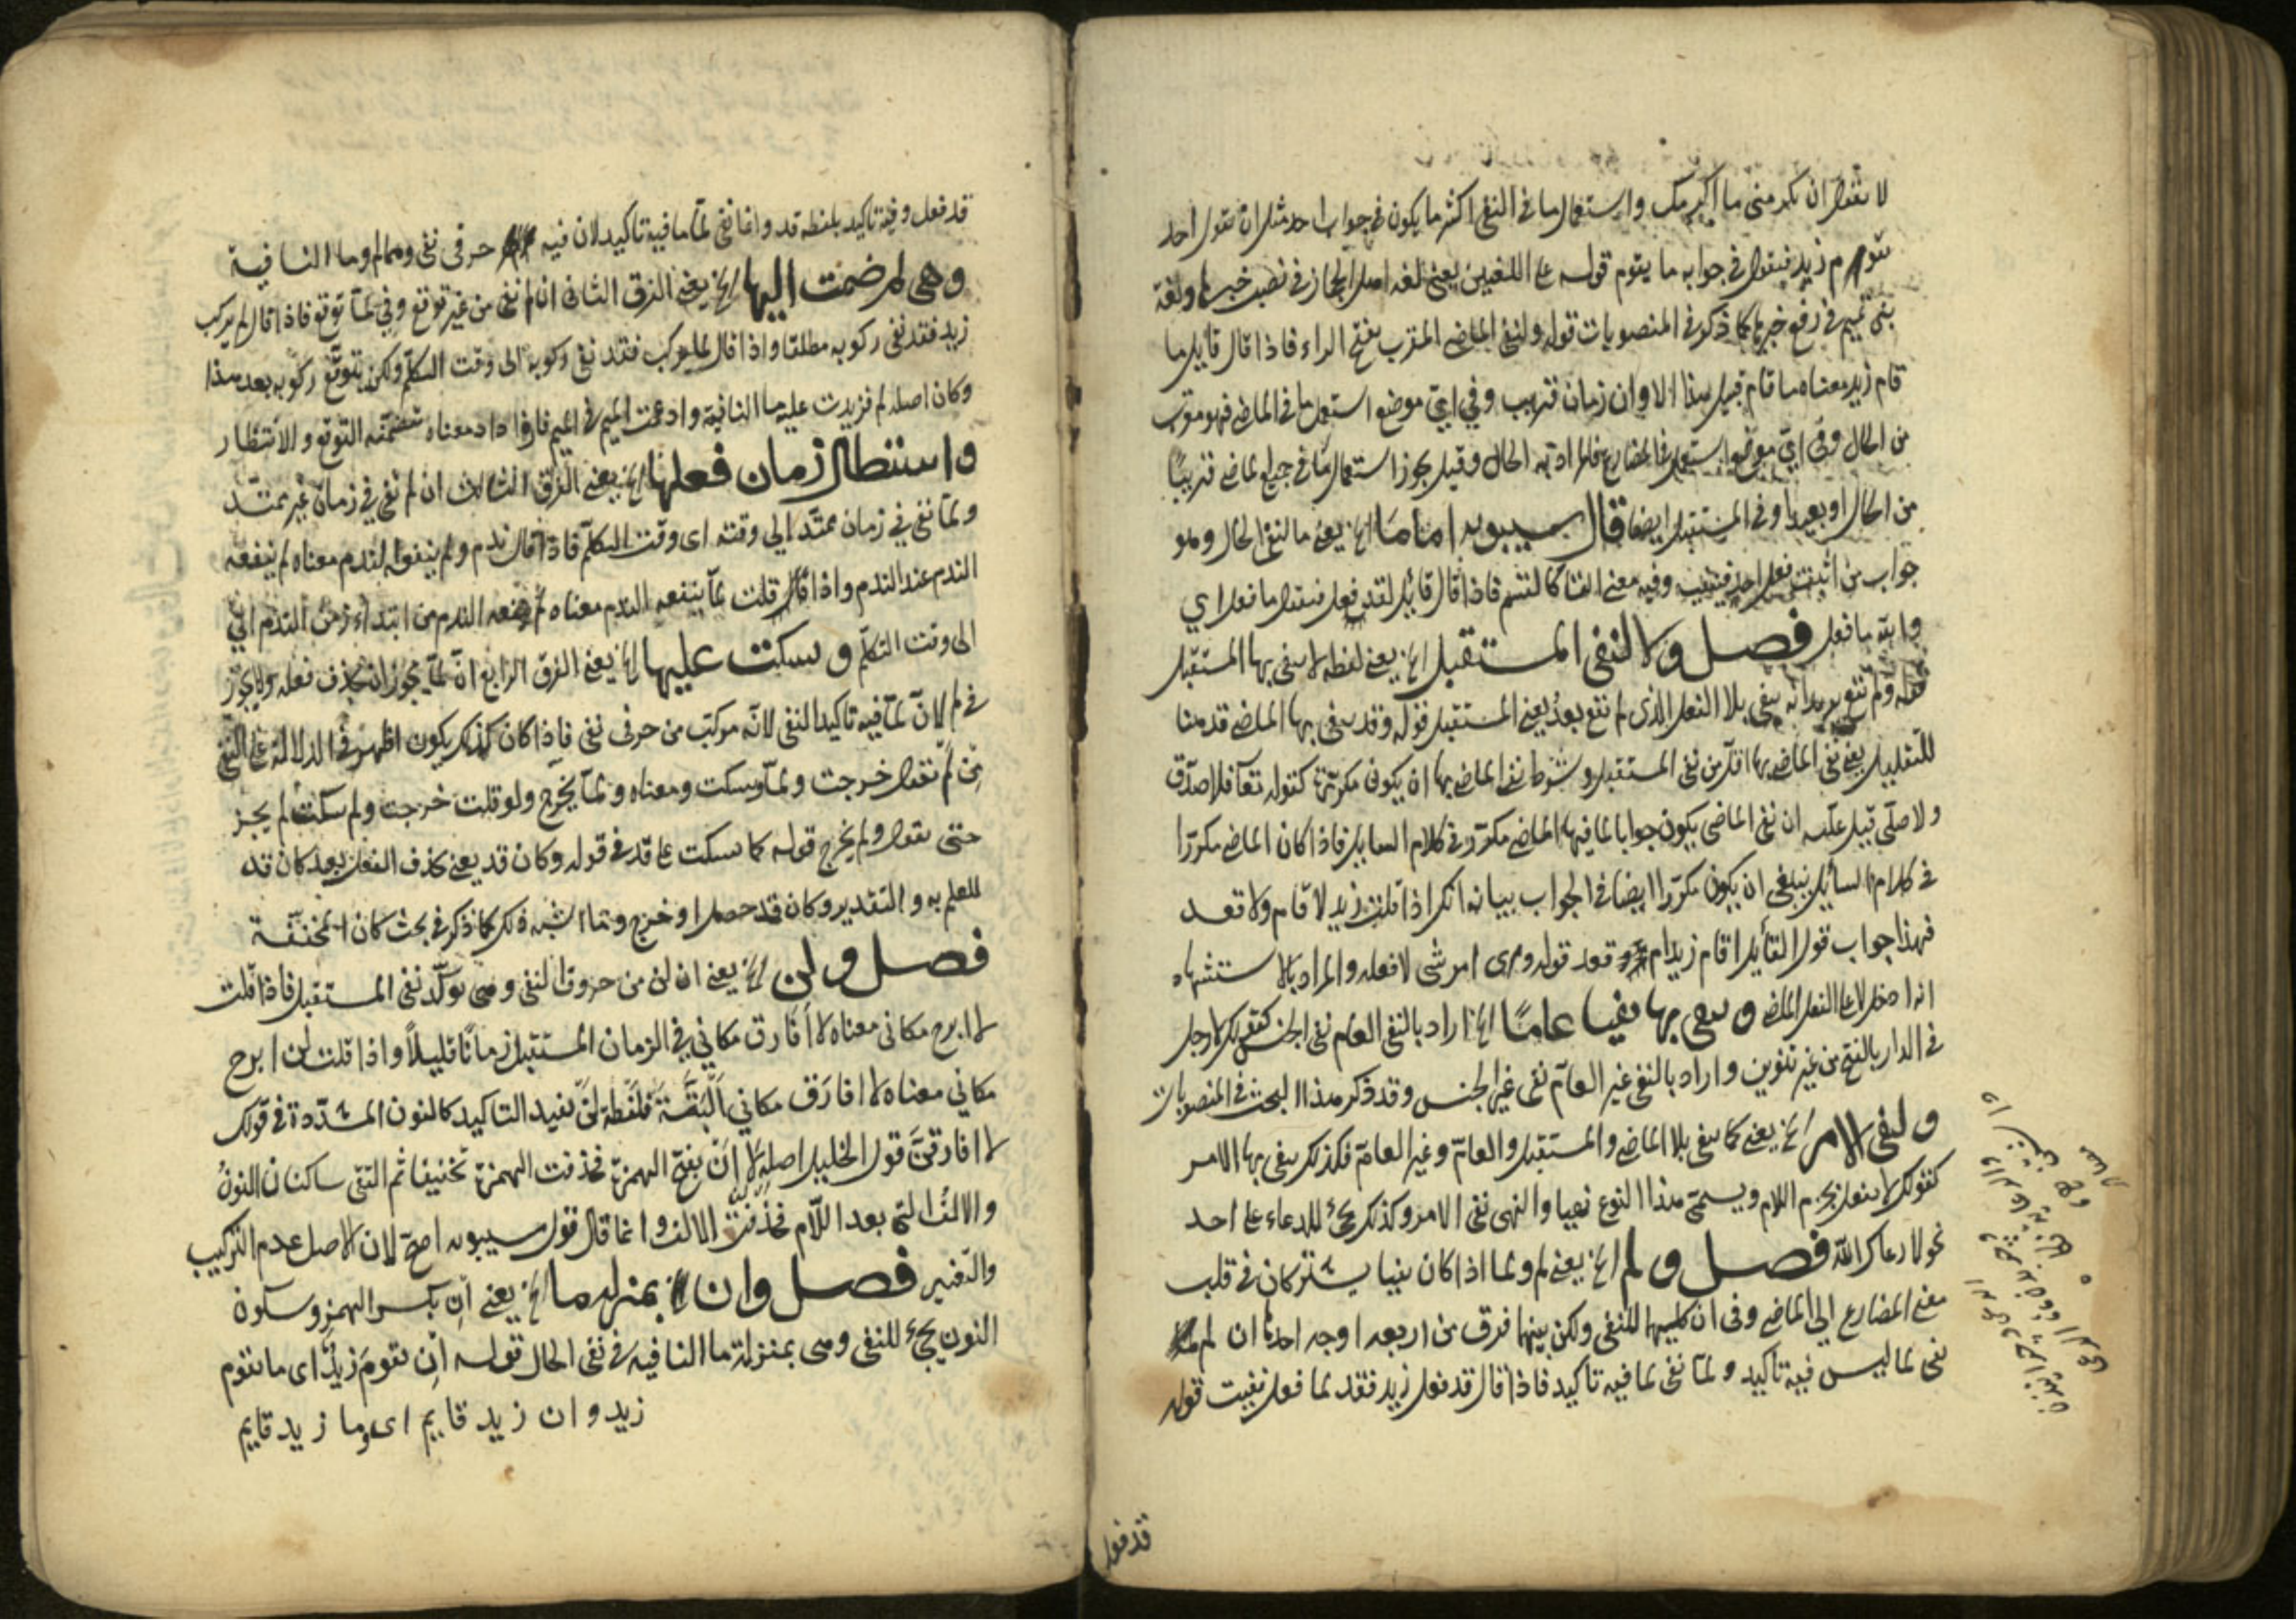 لا تقول ان يكرمني ما اكرمك واستعمال ما في النفي اكثر ما يكون في جواب احد مثل ان يقول احد
يقوم زيد فيقول في جوابه ما يقوم قوله على اللغتين يعني لغة اهل الحجاز في نصب خبرها ولغة
بني تميم في رفع خبرها كما ذكر في المنصوبات قوله ولنفي الماضي المقرب بفتح الراء فاذا قال قايل ما
قام زيد معناه ما قام قبيل هذا الاوان زمان قريب وفي اي موضع استعمل ما في الماضي فهو مقرب
من الحال وفي اي موضع استعمل في المضارع فالمراد به الحال وقيل يجوز استعمال ما في جميع الماضي قريبا
من الحال او بعيدا وفي المستقبل ايضا قال سيبويه اما ما الخ يعني ما لنفي الحال وهو
جواب من اثبت فعل احد وفيه معنى القسم فاذا قال قائل لقد فعل فيقول ما فعل اي
والله ما فعل فصل ولا لنفي المستقبل الخ يعني لفظة لا ينفى بها المستقبل
قوله ولم تقع يريد انه ينفي بلا الفعل الذي لم يقع بعد يعني المستقبل قوله وقد ينفى بها الماضي قد هنا
للتقليل يعني نفي الماضي بها اقل من نفي المستقبل وشرط نفي الماضي بها ان يكون مكررة كقوله تعا فلا صدق
ولا صلى قيل علته ان نفي الماضي يكون جوابا لما فيه الماضي مكرر في كلام السايل فاذا كان الماضي مكررا
في كلام السايل ينبغي ان يكون مكررا ايضا في الجواب بيانه انك اذا قلت زيد لا قام ولا قعد
فهذا جواب قول القايل اقام زيد ام قعد قوله واى امر شى لا فعله والمراد بالاستشهاد
انه ادخل لا على الفعل الماضي وينفى بها نفيا عاما الخ اراد بالنفي العام نفي الجنس كقولك لا رجل
في الدار بالفتح من غير تنوين واراد بالنفي غير العام نفي غير الجنس وقد ذكر هذا البحث في المنصوبات
ولنفي الامر الخ يعني كما ينفى بلا الماضي والمستقبل والعام وغير العام فكذلك ينفى بها الامر
كقولك لا تفعل بجزم اللام ويسمى هذا النوع نهيا والنهي نفي الامر وكذلك يجئ للدعاء على احد
نحو لا رعاك الله فصل ولم الخ يعني لم ولما اذا كان نفيا يشتركان في قلب
معنى المضارع الى الماضي وفي ان كليهما للنفي ولكن بينهما فرق من اربعة اوجه احدها ان لم
نفي لما ليس فيه تاكيد ولما نفي لما فيه تاكيد فاذا قال قد فعل زيد فقد لما فعل نفيت قوله
قد فعل
قد فعل وفيه تاكيد بلفظه قد وانما نفي لما ما فيه تاكيد لان فيه حرفى نفى وهما لم وما النافية
وهي لم ضمت اليها الخ يعني الفرق الثاني ان لم نفي من غير توقع وفي لما توقع فاذا قال لم يركب
زيد فقد نفى ركوبه مطلقا واذا قال لما يركب فقد نفى ركوبه الى وقت التكلم ولكن يتوقع ركوبه بعد هذا
وكان اصله لم فزيدت عليه ما النافية وادغمت الميم في الميم فازداد معناه متضمنة التوقع والانتظار
واستطال زمان فعلها الخ يعني الفرق الثالث ان لم نفي في زمان غير ممتد
ولما نفي في زمان ممتد الى وقته اى وقت التكلم فاذا قال ندم ولم ينفعه الندم معناه لم ينفعه
الندم عند الندم واذا قلت لما ينفعه الندم معناه لم ينفعه الندم من ابتداء زمن الندم الي
الى وقت التكلم وسكت عليها الخ يعني الفرق الرابع ان لما يجوز ان يحذف فعله ولا يجوز
في لم لان لما فيه تاكيد النفى لانه مركب من حرفى نفى فاذا كان كذلك يكون اظهر في الدلالة على النفى
من لم تقول خرجت ولما وسكت ومعناه ولما يخرج ولو قلت خرجت ولم سكت لم يجز
حتى تقول ولم يخرج قوله كما سكت على قد في قوله وكان قد يعني يحذف الفعل بعد كان قد
للعلم به والتقدير وكان قد حصل او خرج وما اشبه ذلك كما ذكر في بحث كان المخففة
فصل ولن الخ يعني ان لن من حروف النفي وهى توكد نفي المستقبل فاذا قلت
لا ابرح مكاني معناه لا افارق مكاني في الزمان المستقبل زمانا قليلا واذا قلت لن ابرح
مكاني معناه لا افارق مكاني البتة فلفظة لن يفيد التاكيد كالنون المشددة في قولك
لا افارقن قول الخليل اصله لا ان بفتح الهمزة فحذفت الهمزة تخفيفا ثم التقى ساكنان النون
والالف التي بعد اللام فحذفت الالف وانما قال قول سيبويه اصح لان الاصل عدم التركيب
والتغير فصل وان بمنزلة ما الخ يعني ان بكسر الهمزة وسكون
النون يجئ للنفي وهى بمنزلة ما النافية في نفي الحال قوله ان يقوم زيد اى ما يقوم
زيد وان زيد قايم اى وما زيد قايم